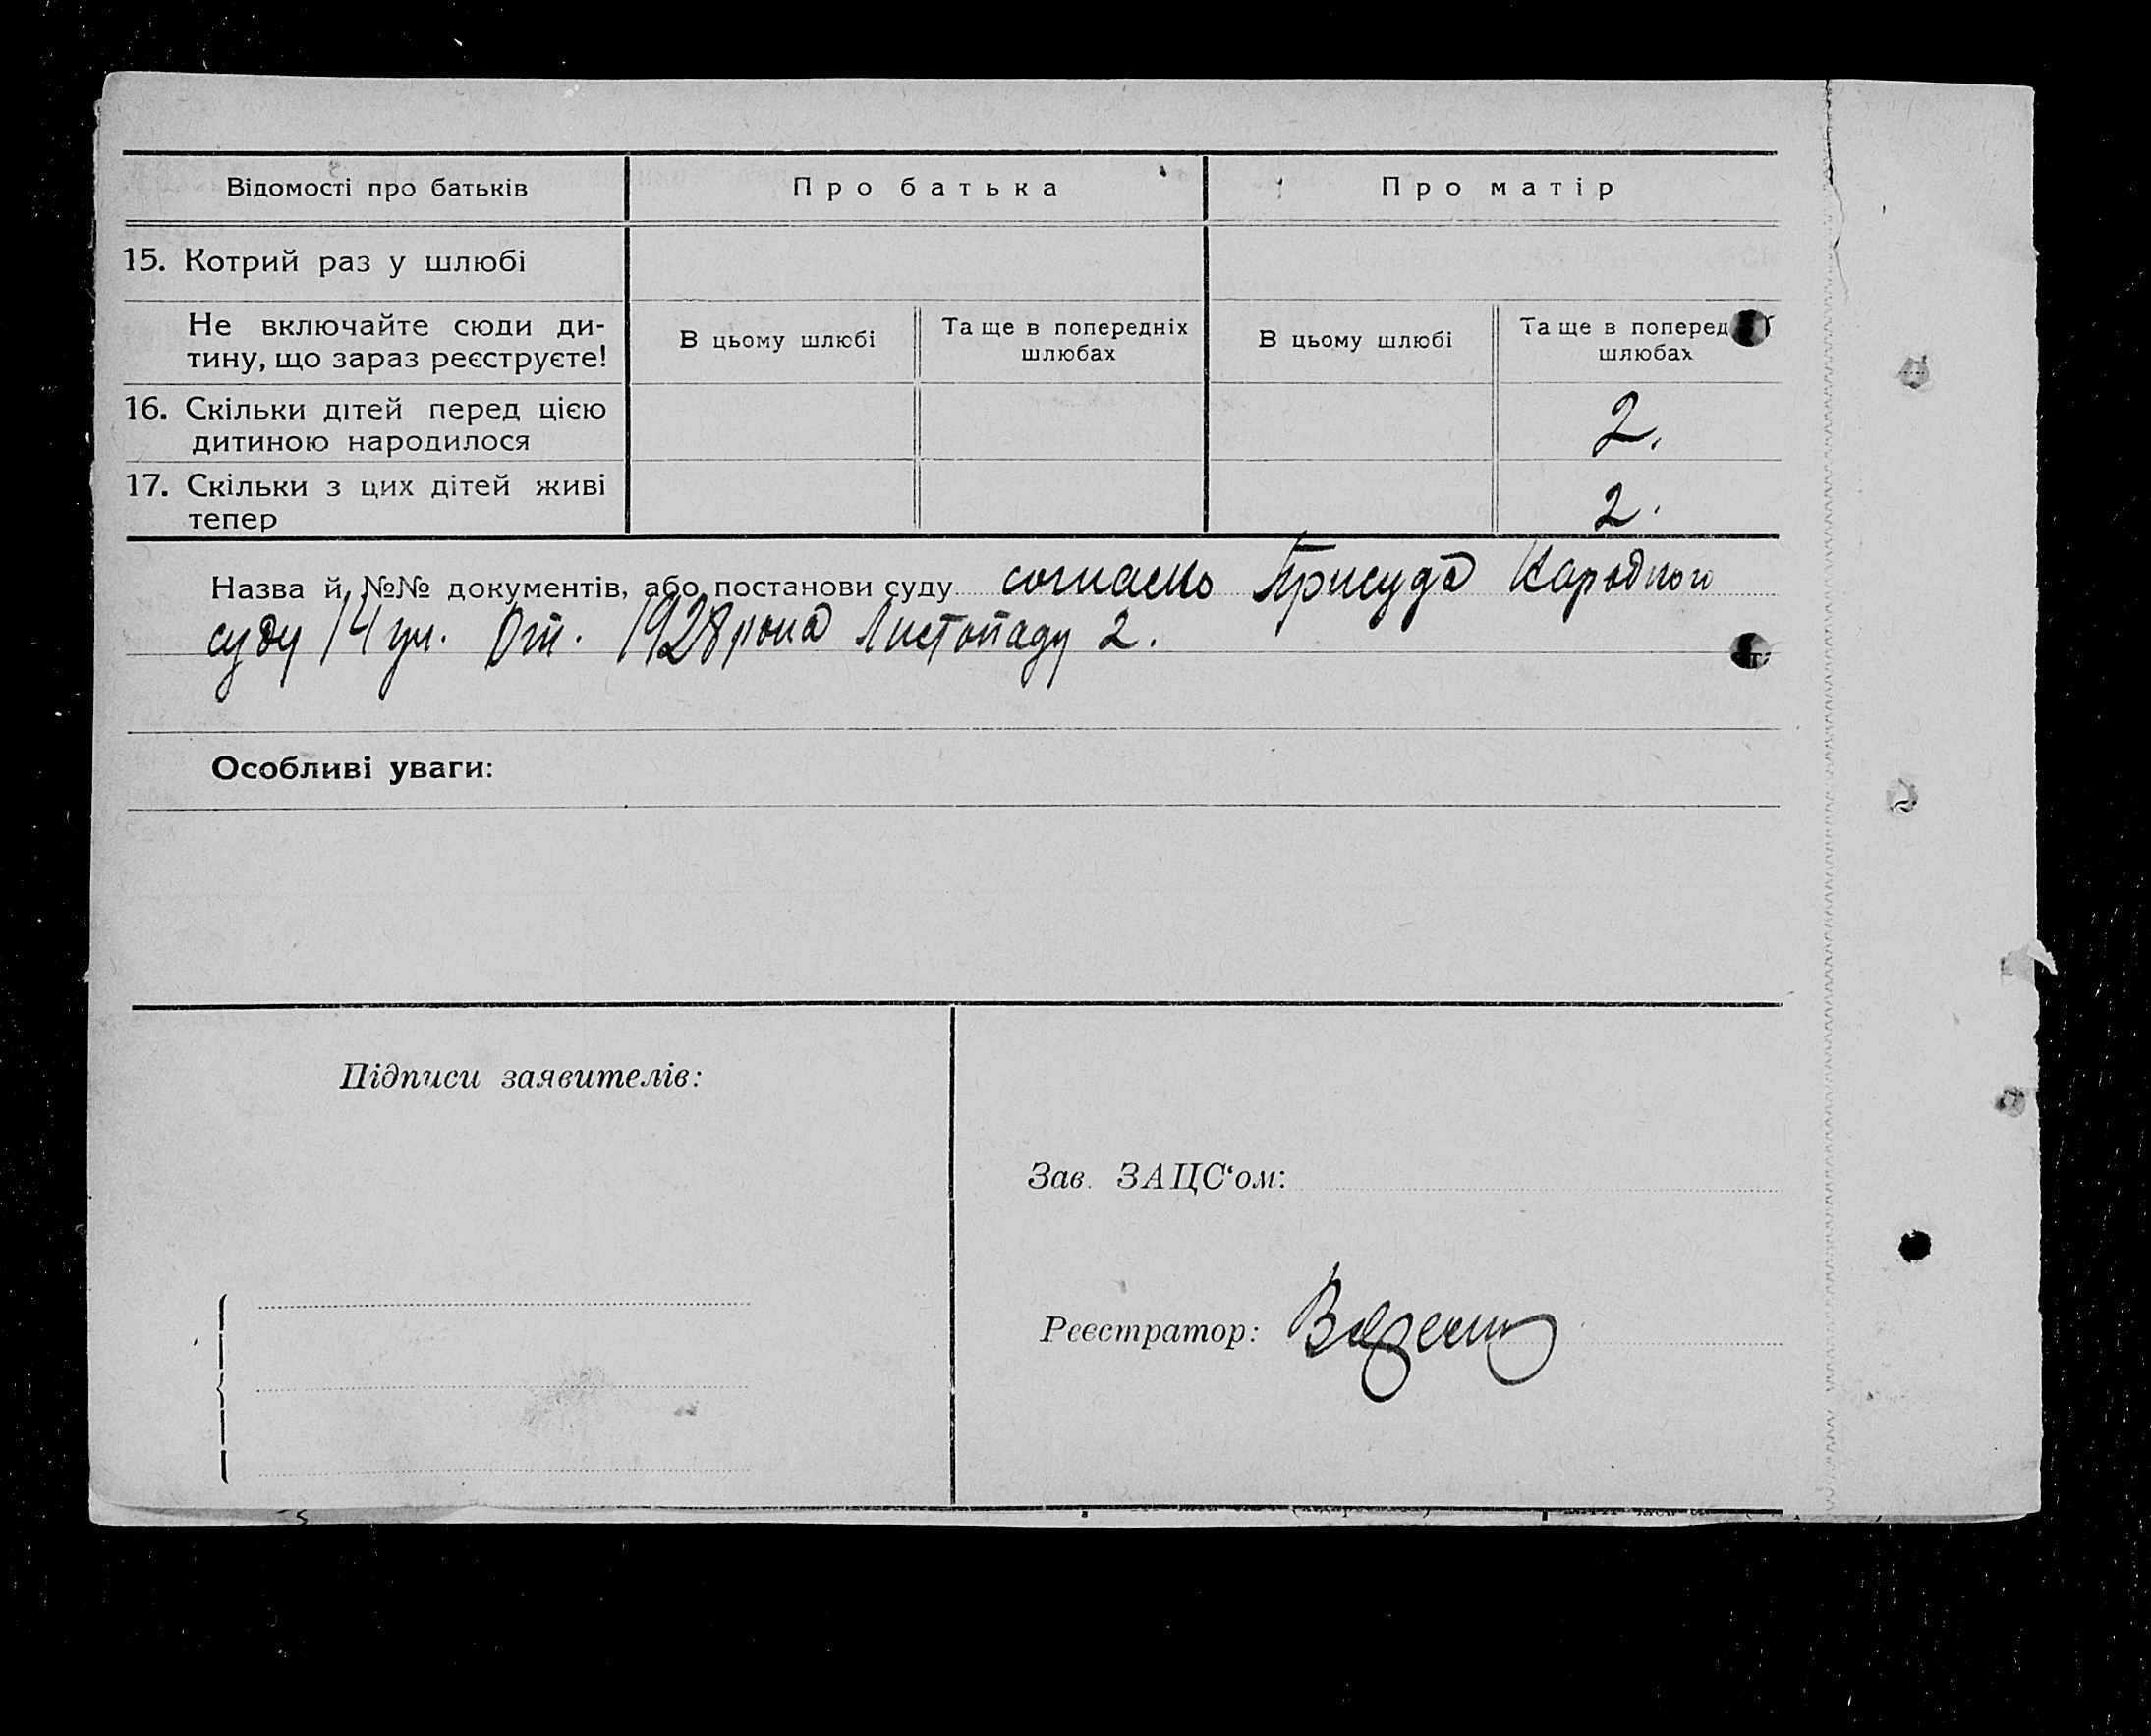 Відомості про батьків
Про батька
Про матір
15. Котрий раз у шлюбі
Не включайте сюди ди-
тину, що зараз реєструєте!
В цьому шлюбі
Та ще в попередніх
шлюбах
В цьому шлюбі
Та ще в поперед
шлюбах
16. Скільки дітей перед цією
дитиною народилося
2.
17. Скільки з цих дітей живі
тепер
2.
Назва й №№ документів, або постанови суду согласно Присуда Народного
суду 14 от. 1928 рока Листопаду 2.
Особливі уваги:
Підписи заявителів:
Зав. ЗАЦС‘ом:
Реєстратор: